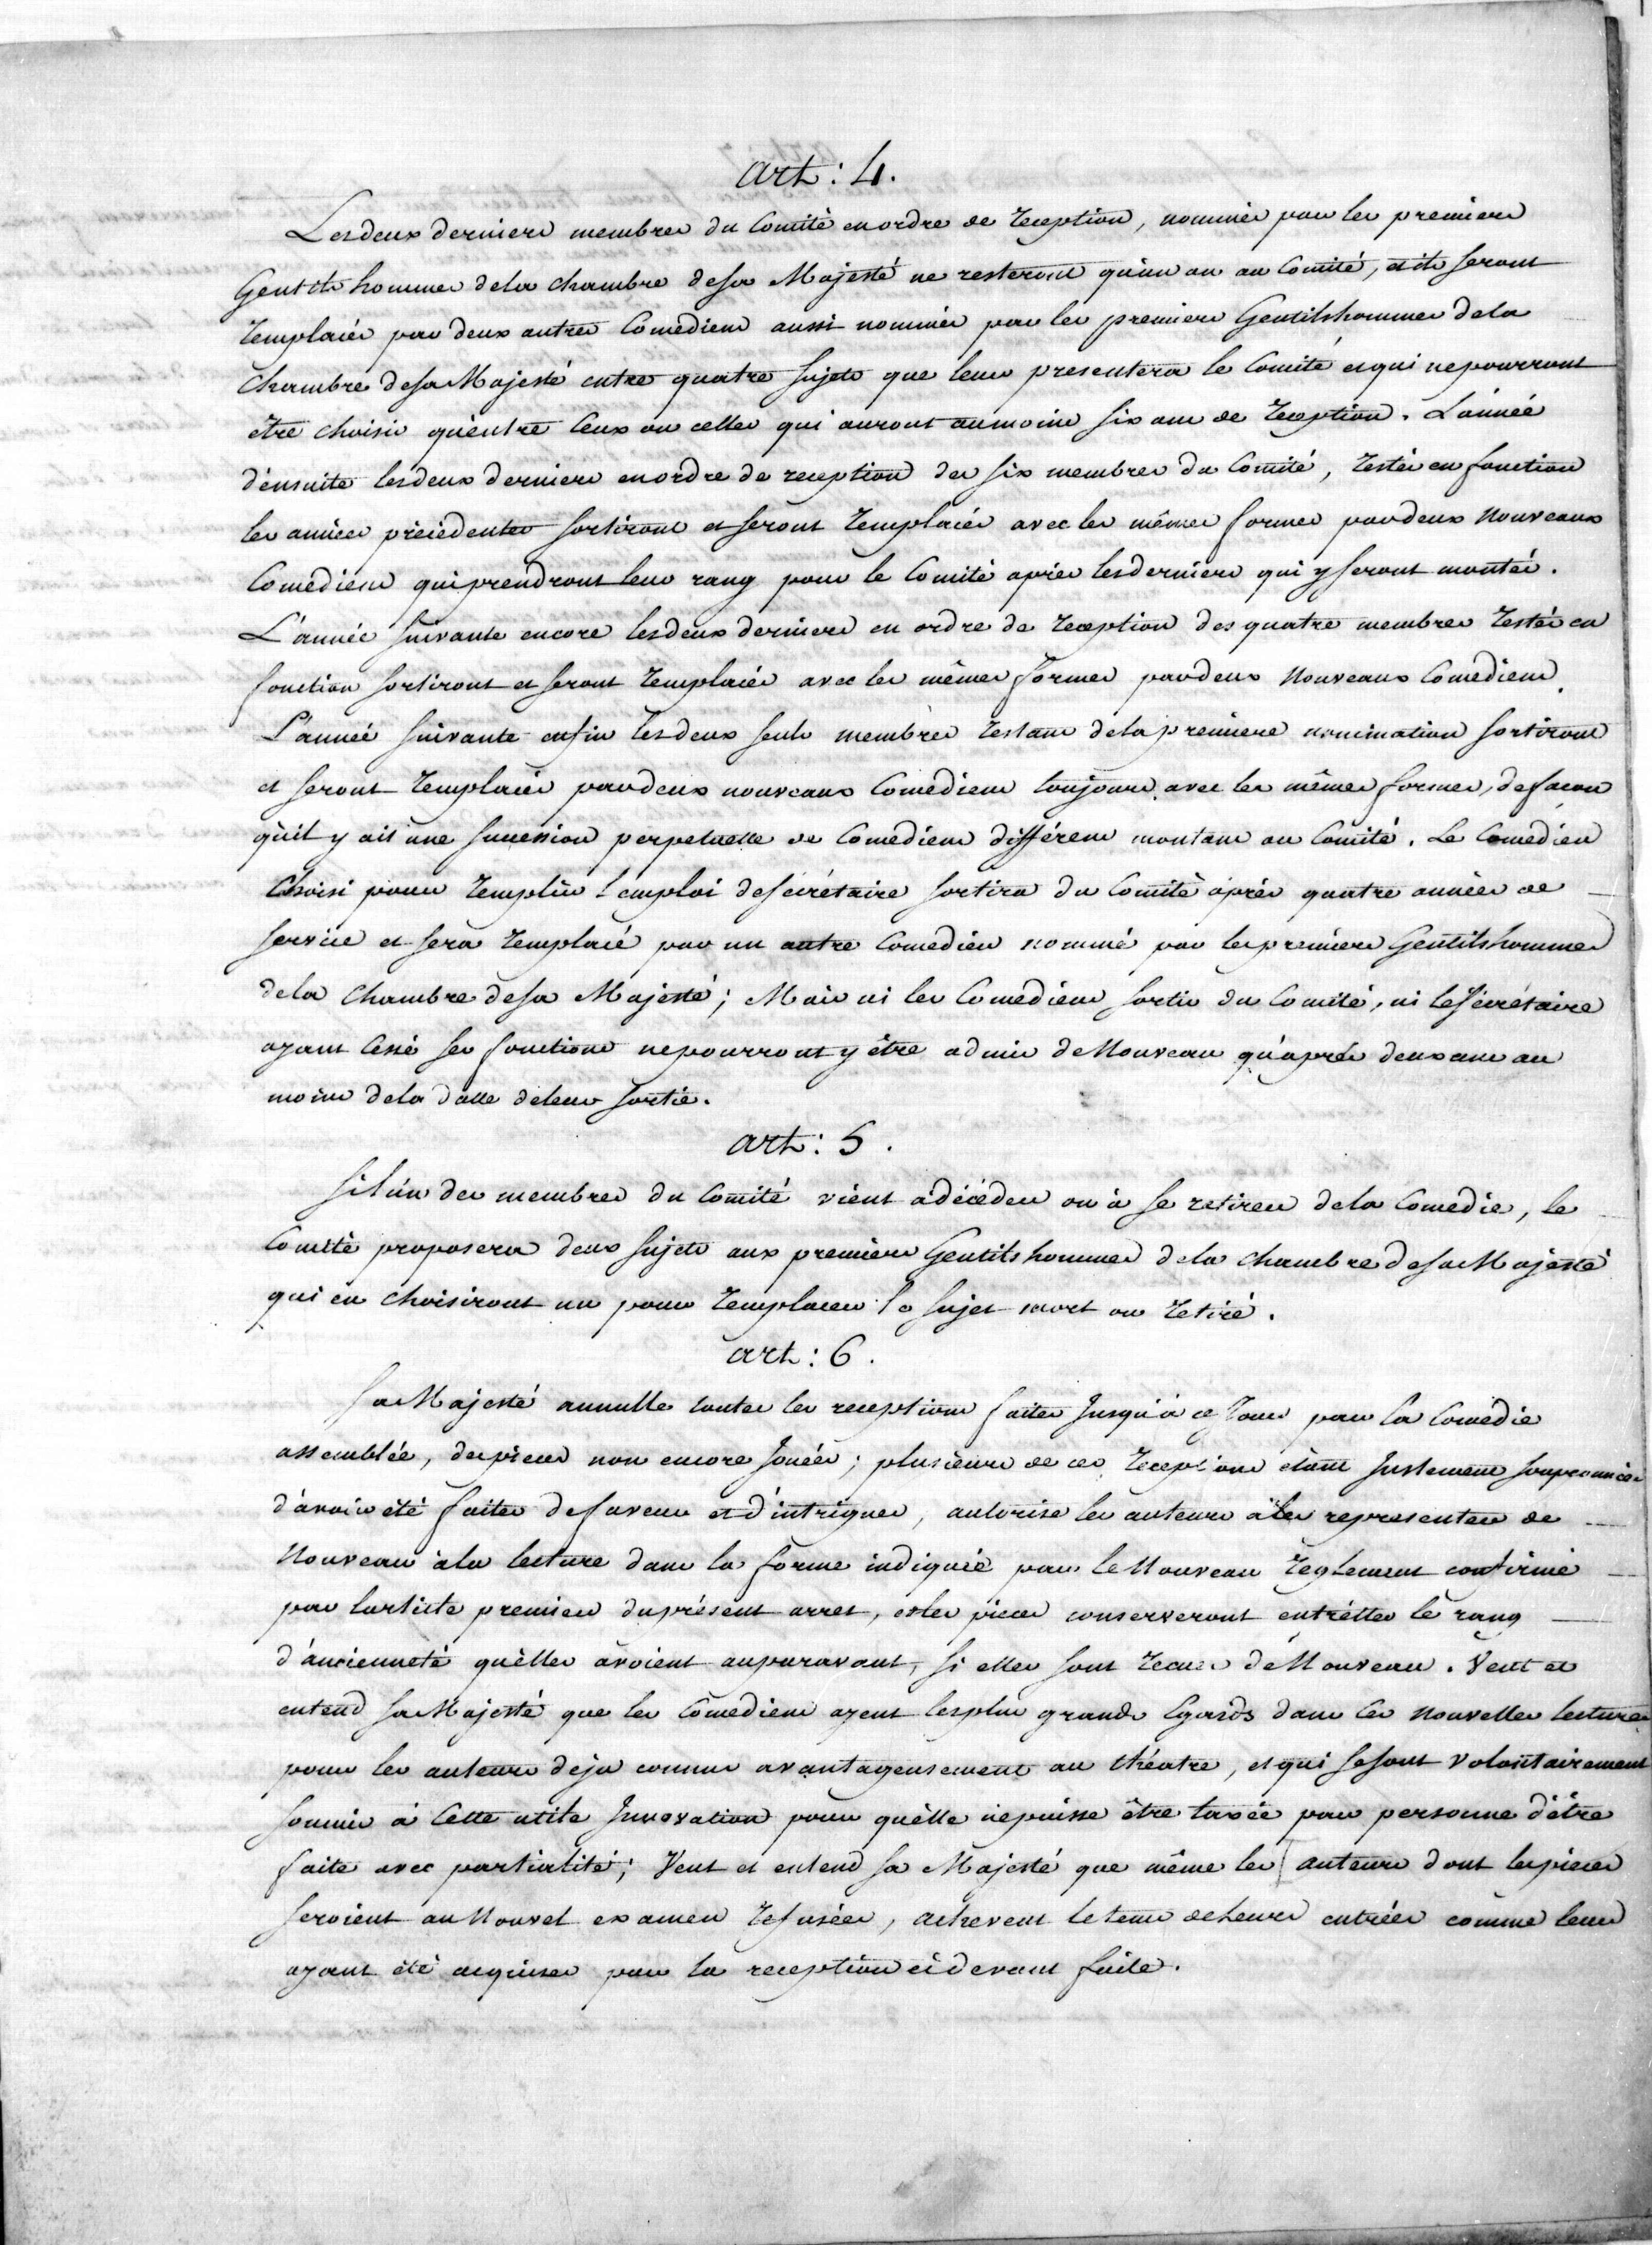 art: 4.
Les deux derniers membres du Comité en ordre de reception, nommés par les premiers
Gentilshommes de la chambre de sa Majesté ne resteront qu'un an au Comité, et ils seront
remplacés par deux autres Comediens aussi nommés par les premiers Gentilshommes de la
Chambre de sa Majesté entre quatre sujets que leur presentera le Comité et qui ne pourront
etre choisis qu'entre Ceux ou celles qui auront au moins six ans de reception. L'année
d'ensuite les deux derniers en ordre de reception des six membres du Comité, restés en fonction
les années précédentes sortiront et seront remplacés avec les mêmes formes par deux Nouveaux
Comediens qui prendront leur rang pour le Comité après les derniers qui y seront montés.
L'année suivante encore les deux derniers en ordre de reception des quatre membres restés en
fonction sortiront et seront remplacés avec les mêmes formes par deux Nouveaux Comediens.
L'année suivante enfin les deux seuls membres restans de la premiere nomination sortiront
et seront remplacés par deux nouveaux Comediens toujours avec les mêmes formes, de facon
qu'il y ait une succession perpetuelle de Comediens différens montans au Comité. Le Comedien
Choisi pour remplir l'emploi de secrétaire sortira du Comité après quatre années de
service et sera remplacé par un autre Comedien nommé par les premiers Gentilshommes
de la Chambre de sa Majesté; Mais ni les Comediens sortis du Comité, ni le secrétaire
ayant Cessé ses fonctions ne pourront y être admis de Nouveau qu'après deux ans au
moins de la datte de leur sortie.
art: 5.
Si l'un des membres du Comité vient à décéder ou à se retirer de la Comedie, le
Comité proposera deux sujets aux premiers Gentilshommes de la chambre de sa Majesté
qui en choisiront un pour remplacer le sujet mort ou retiré.
art: 6.
Sa Majesté annulle toutes les receptions faites Jusqu'à ce Jour par la Comédie
assemblée, des pieces non encore Jouées; plusieurs de ces receptions étant Justement soupconnées
d'avoir été faites de faveur et d'intrigues, autorise les auteurs à les representer de
Nouveau à la lecture dans la forme indiquée par le Nouveau reglement confirmé
par l'article premier du présent arret, et les pieces conserveront entr'elles le rang
d'ancienneté qu'elles avoient auparavant, si elles sont recues de Nouveau. Veut et
entend sa Majesté que les Comediens ayent les plus grands Egards dans Ces Nouvelles lectures
pour les auteurs deja connus avantageusement au théatre, et qui se sont Volontairement
soumis à Cette utile Innovation pour qu'elle ne puisse être taxée par personne d'être
faite avec partialité; Veut et entend sa Majesté que même les auteurs dont les pieces
seroient au Nouvel examen refusées, achevent le tems de Leurs entrées comme leur
ayant été acquises par la reception ci devant faite.